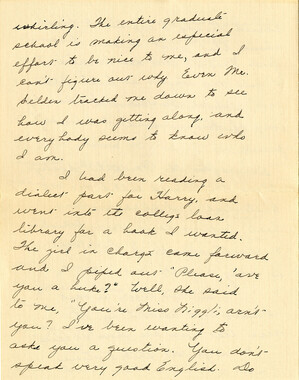 whirling. The entire graduate
school is making an especial
effort to be nice to me, and I
can't figure out why. Even Mr.
Selden tracked me down to see
how I was getting along, and
everybody seems to know who
I am.
I had been reading a
dialect part for Harry, and
went into the college loan
library for a book I wanted.
The girl in charge came forward
and I piped out "Please, 'ave
you a buke?" Well, she said
to me, "You're Miss Niggli, aren't
you? I've been wanting to
ask you a question. You don't
speak very good English. Do